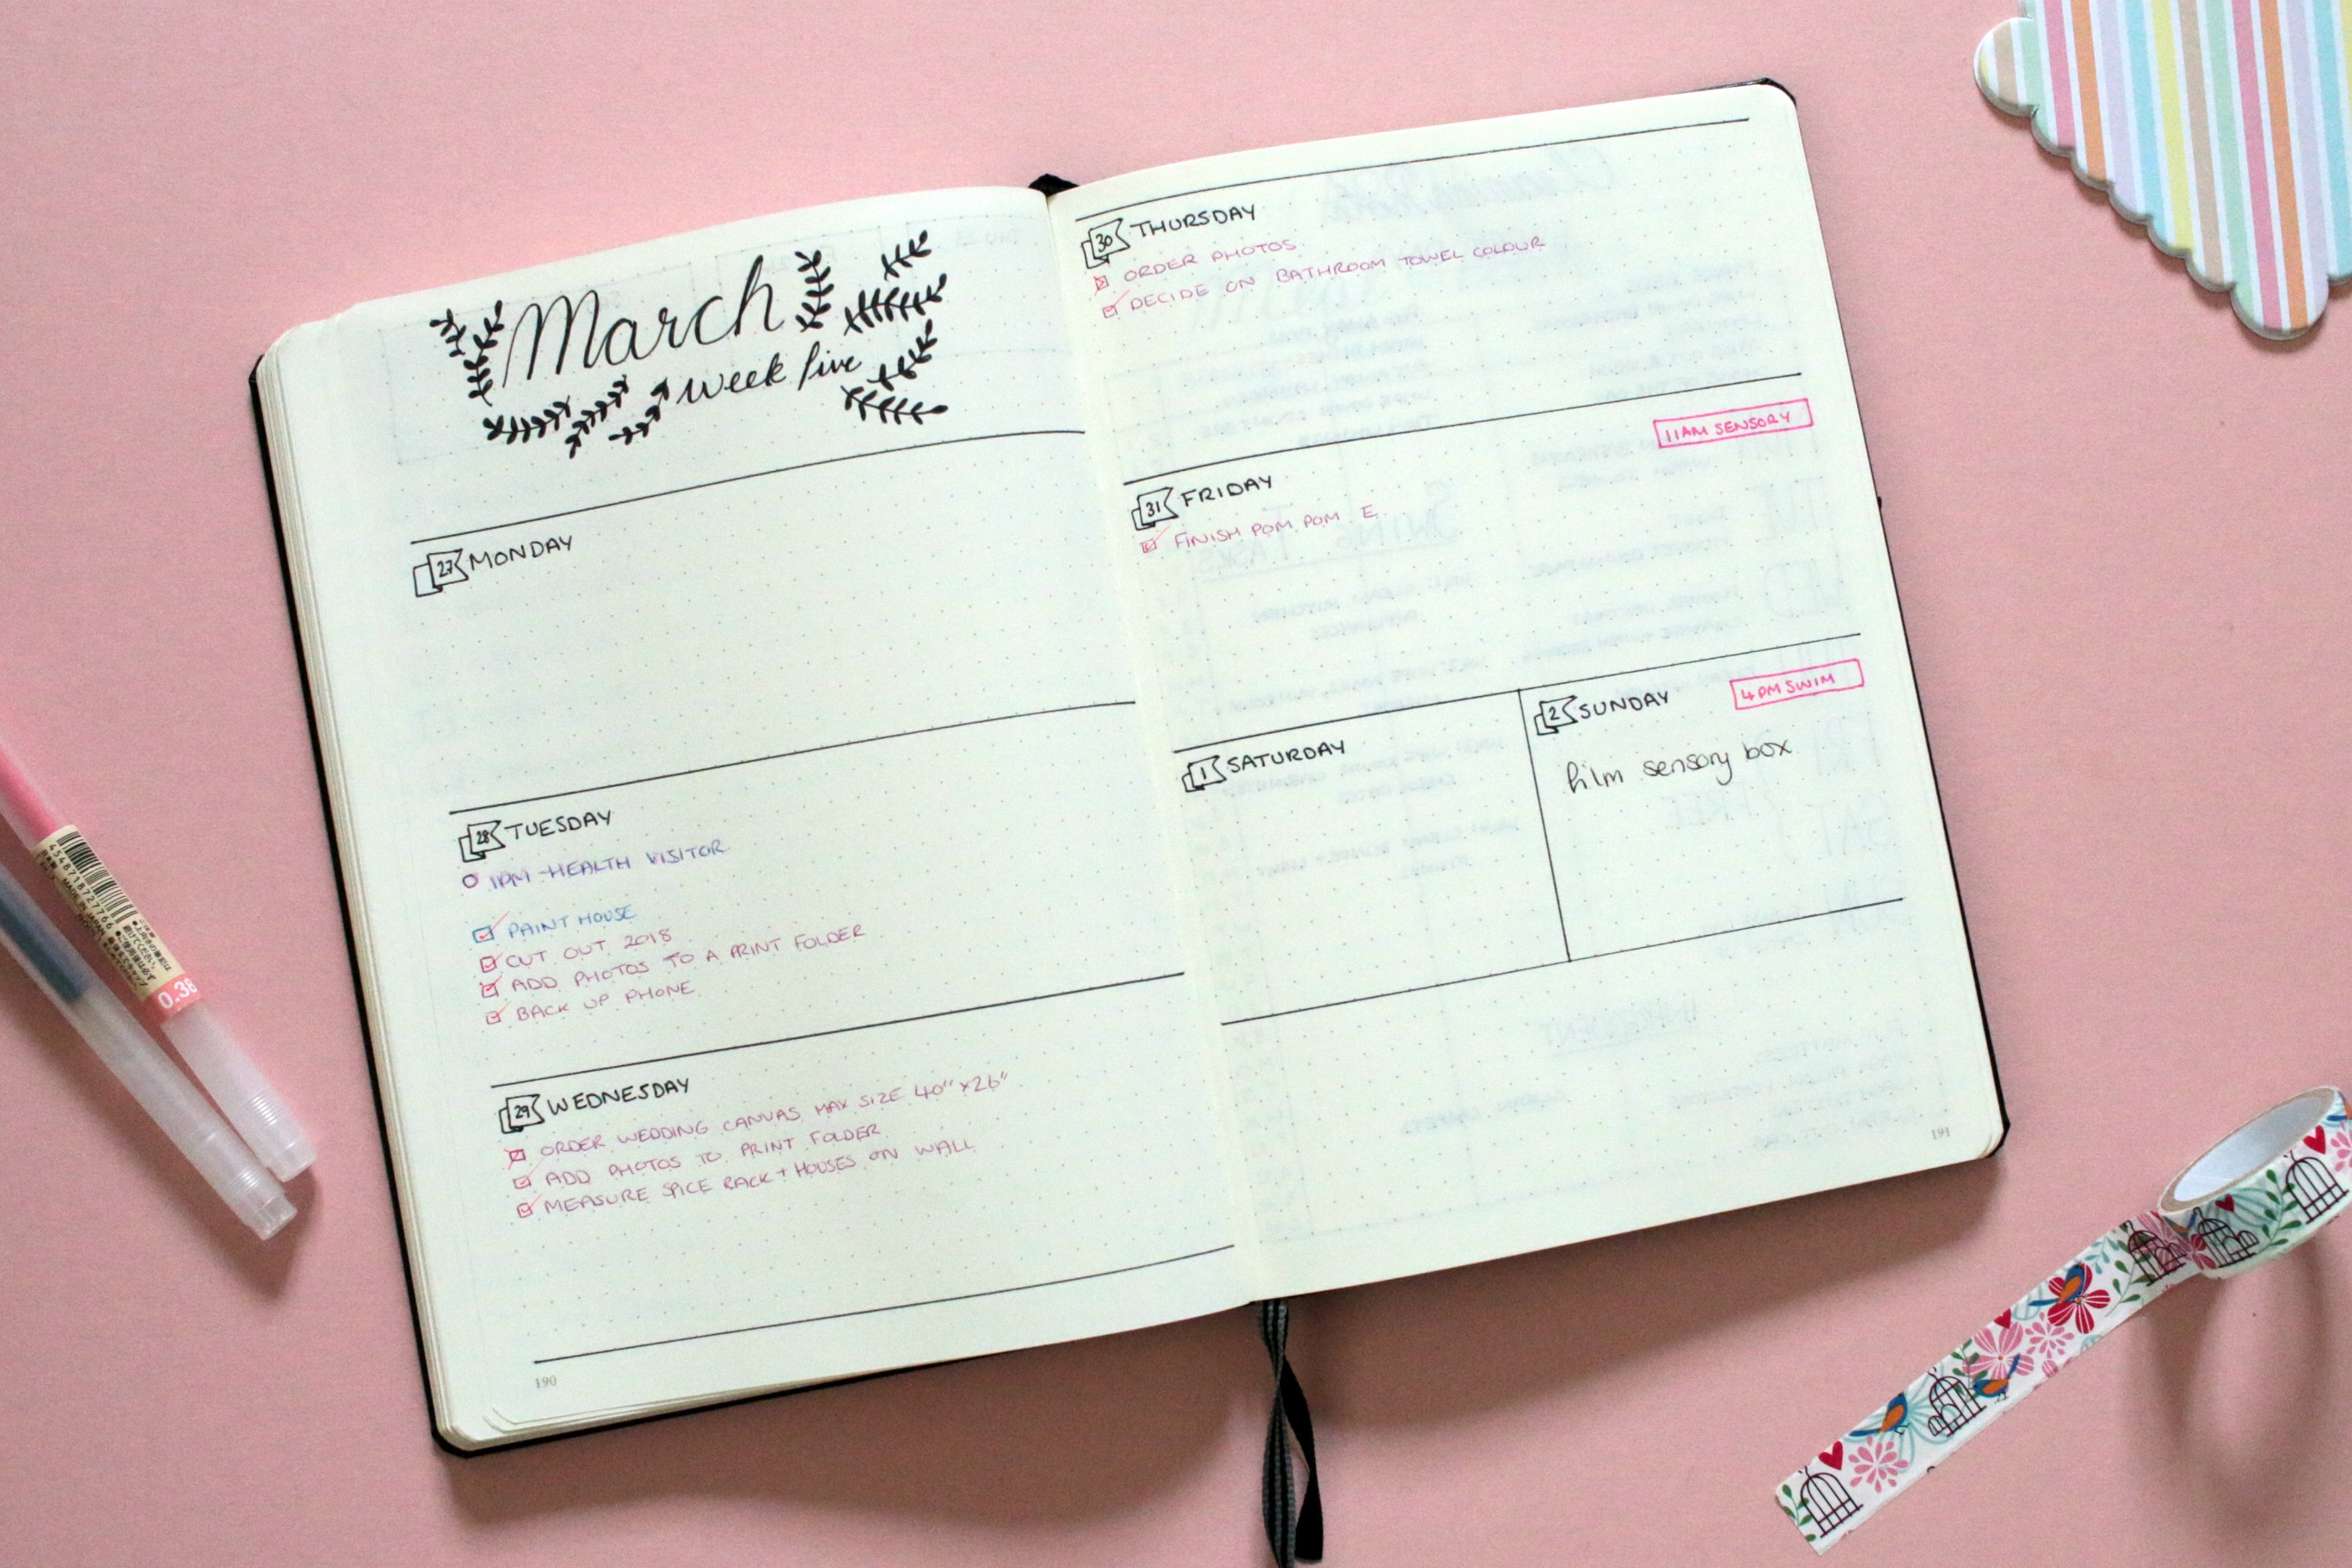 March
week five
27 MONDAY
28 TUESDAY
1PM - HEALTH VISITOR
PAINT HOUSE
CUT OUT 2018
ADD PHOTOS TO A PRINT FOLDER
BACK UP PHONE
29 WEDNESDAY
ORDER WEDDING CANVAS MAX SIZE 40" x 26"
ADD PHOTOS TO PRINT FOLDER
MEASURE SPICE RACK + HOUSES ON WALL
190
30 THURSDAY
ORDER PHOTOS
DECIDE ON BATHROOM TOWEL COLOUR
11AM SENSORY
31 FRIDAY
FINISH POM POM E
1 SATURDAY
2 SUNDAY
4PM SWIM
film sensory box
191
MADE IN JAPAN
0.38